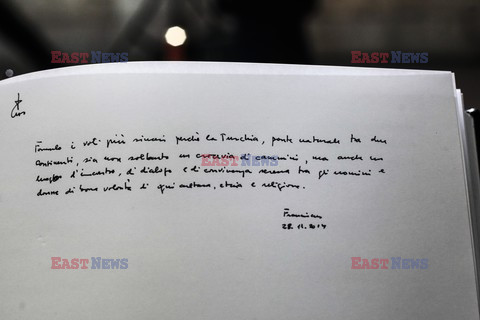 EASTNEWS EASTNEWS
Formulo i voti più sinceri perché la Turchia, ponte naturale tra due
Continenti, sia non soltanto un crocevia di cammini, ma anche un
EASTNEWS
luogo d'incontro, di dialogo e di convivenza serena tra gli uomini e
donne di buona volontà di ogni cultura, etnia e religione.
Franciscus
28.11.2014
EASTNEWS EASTNEWS